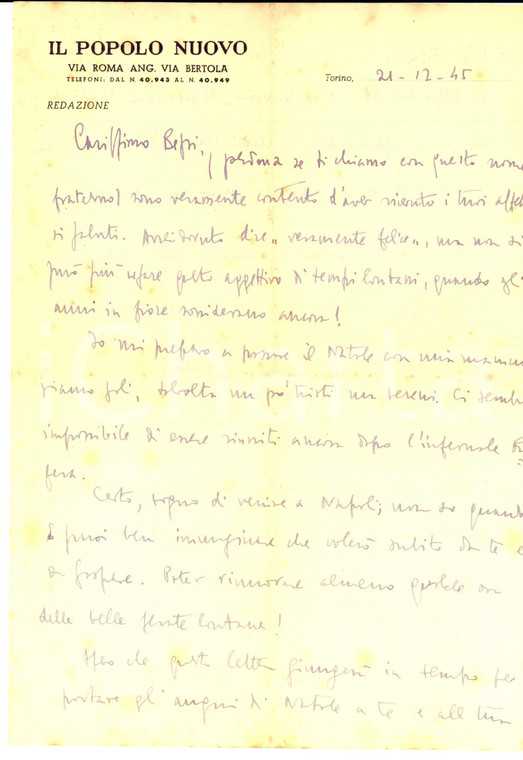 IL POPOLO NUOVO
VIA ROMA ANG. VIA BERTOLA
TELEFONI: DAL N. 40.943 AL N. 40.949
REDAZIONE
Torino, 21-12-45
Carissimo Beppi,
(perdona se ti chiamo con questo nome
fraterno) sono veramente contento d'aver ricevuto i tuoi affet
si saluti. Avrei dovuto dire "veramente felice", ma non si
può più usare questo aggettivo di tempi lontani, quando gli
anni in fiore sorridevano ancora!
Io mi preparo a passare il Natale con mia mamma
siamo soli, talvolta un po' tristi ma sereni. Ci sembr
impossibile di essere riuniti ancora dopo l'infernale bu
fera.
Certo, sogno di venire a Napoli; non so quando
E puoi ben immaginare che volerò subito da te e
da Gaspare. Poter rinnovare almeno qualche ora
delle belle serate lontane!
Spero che questa lettera giungerà in tempo per
portare gli auguri di Natale a te e alla tua